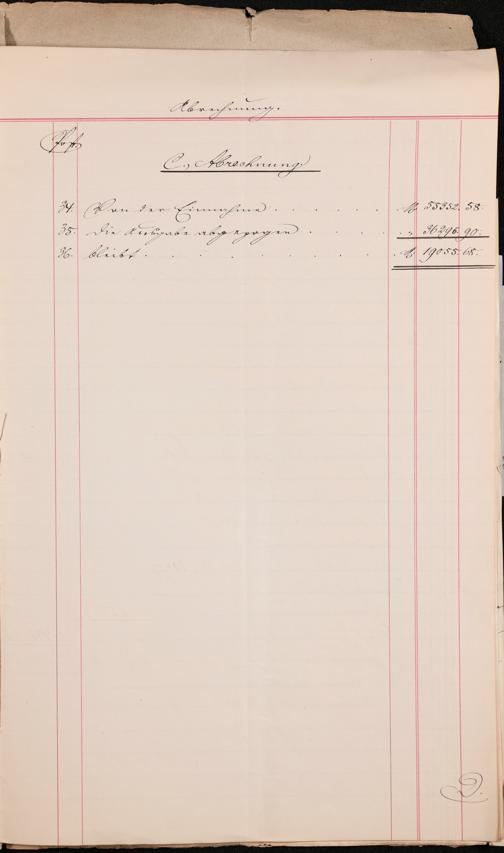 Abrechnung.
Pos.
C., Abrechnung
34. Von der Einnahme . . . . . . M 55352. 58.
35. die Ausgabe abgezogen . . . . " 36296. 90.
36. bleibt . . . . . . . . M 19055. 68.
D.